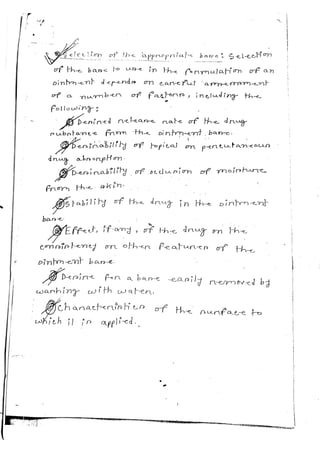 Selection of the appropriate base: Selection
of the base to use in the formulation of an
ointment depends on careful assessment
of a number of factors, including the
following:
Desired release rate of the drug
substance from the ointment base.
Desirability of topical or percutaneous
drug absorption.
Desirability of occlusion of moisture
from the skin.
Stability of the drug in the ointment
base.
Effect, if any, of the drug on the
consistency or other features of the
ointment base.
Desire for a base easily removed by
washing with water.
Characteristics of the surface to
which it is applied.